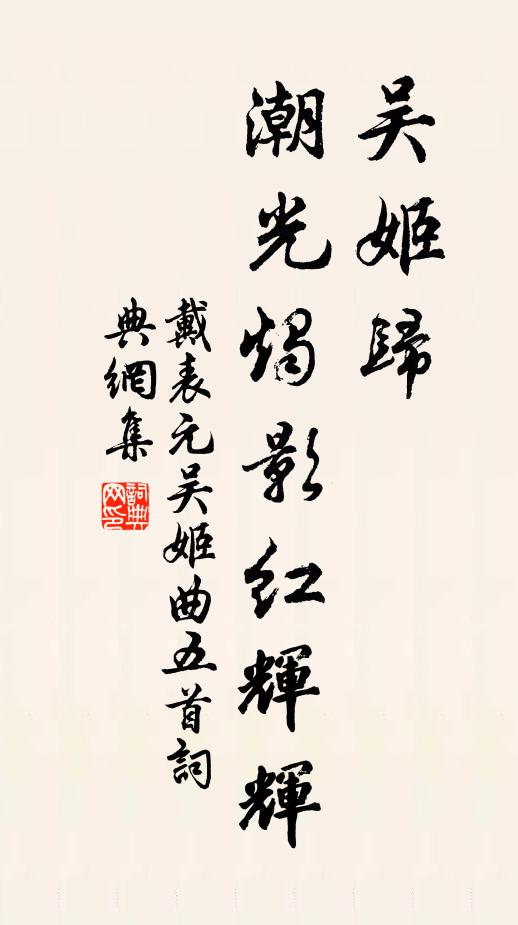 吴姬歸
潮光燭影紅輝輝
戴表元吴姬曲五首詞
典網集
詞典網印